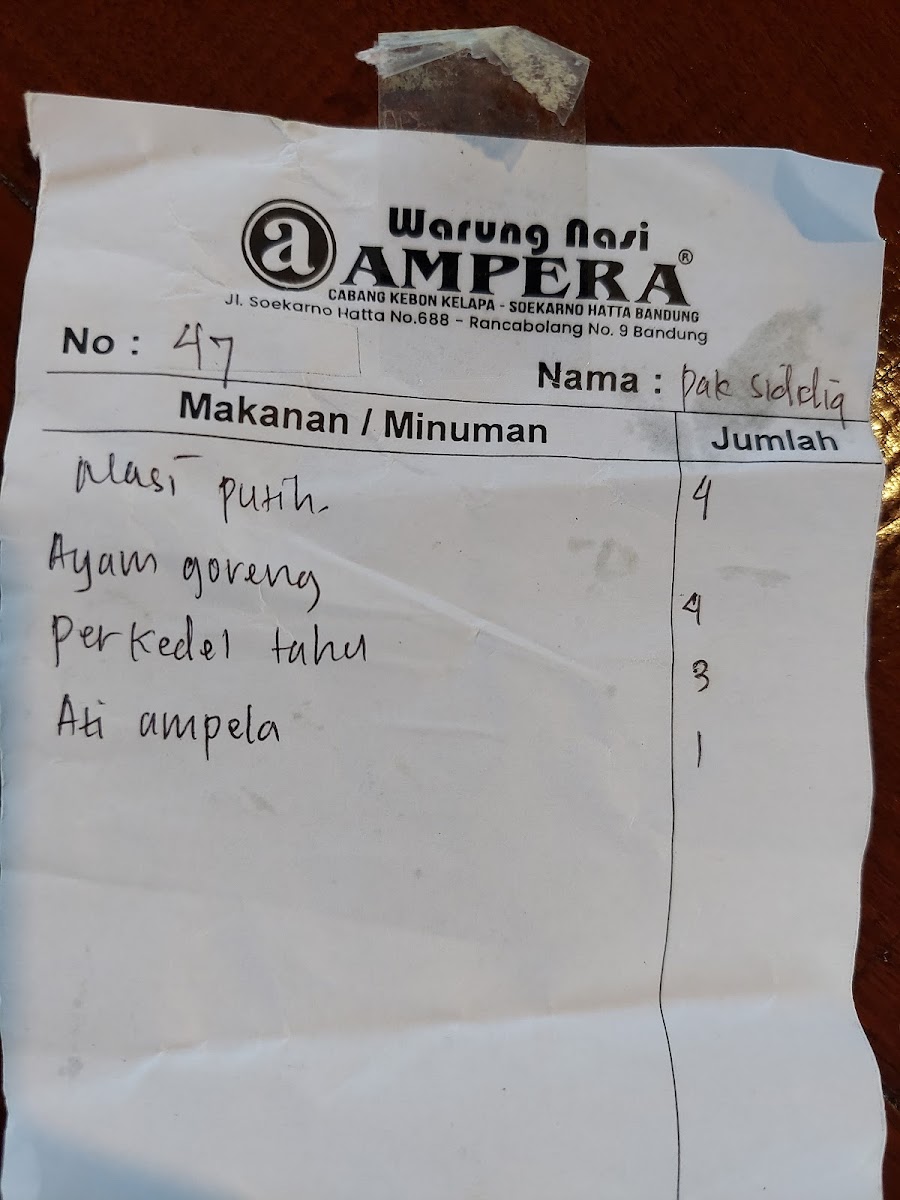 a Warung Nasi
AMPERA®
CABANG KEBON KELAPA - SOEKARNO HATTA BANDUNG
Jl. Soekarno Hatta No.688 - Rancabolang No. 9 Bandung
No : 47
Nama : pak siddiq
Makanan / Minuman Jumlah
Nasi putih 4
Ayam goreng 4
Perkedel tahu 3
Ati ampela 1